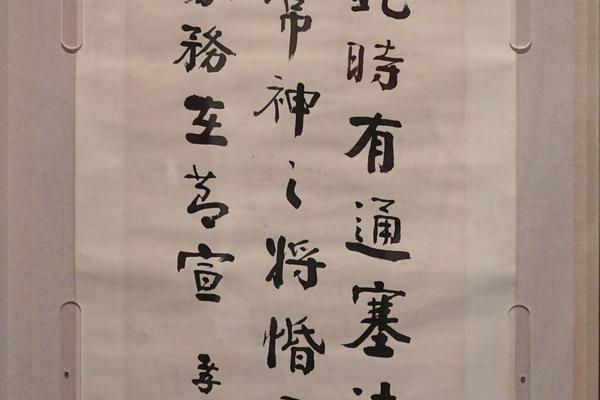 時有通塞
常神之将惛
務在莭宣